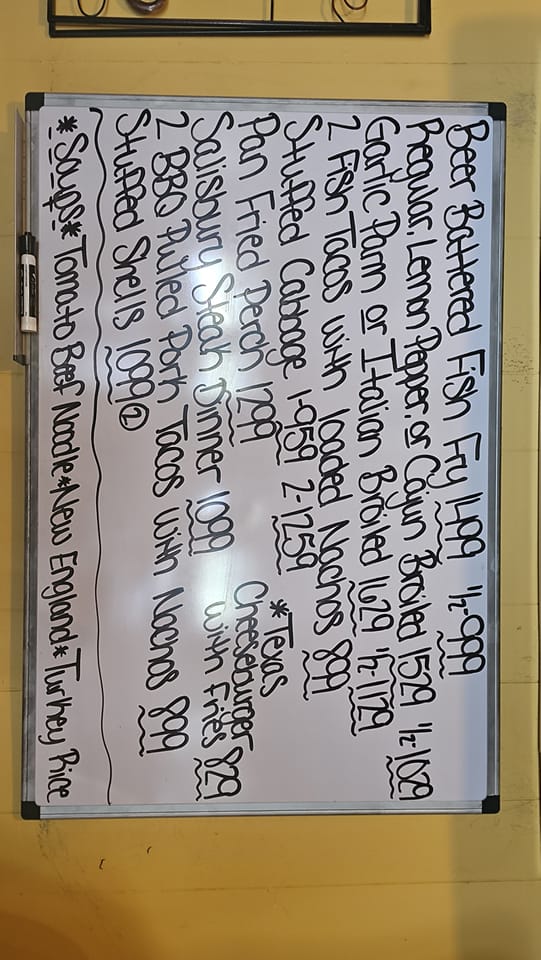 Beer Battered Fish Fry 1499 1/2-999
Regular, Lemon Pepper or Cajun Broiled 1529 1/2-1029
Garlic Parm or Italian Broiled 1629 1/2-1129
2 Fish Tacos with loaded Nachos 899
Stuffed Cabbage 1-959 2-1259
Pan Fried Perch 1299
Salisbury Steak Dinner 1099
2 BBQ Pulled Pork Tacos with Nachos 899
Stuffed Shells 1099 2
*Texas
Cheeseburger
with Fries 829
*Soups* Tomato Beef Noodle*New England*Turkey Rice